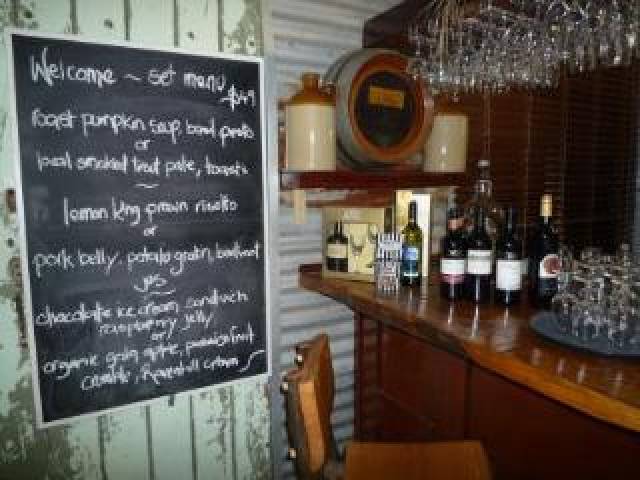 Welcome ~ set menu
$49
roast pumpkin soup,
or
local smoked trout pate, toasts
~
lemon king prawn risotto
or
pork belly, potato gratin,
~
chocolate ice cream sandwich
raspberry jelly
or
organic apple, passionfruit